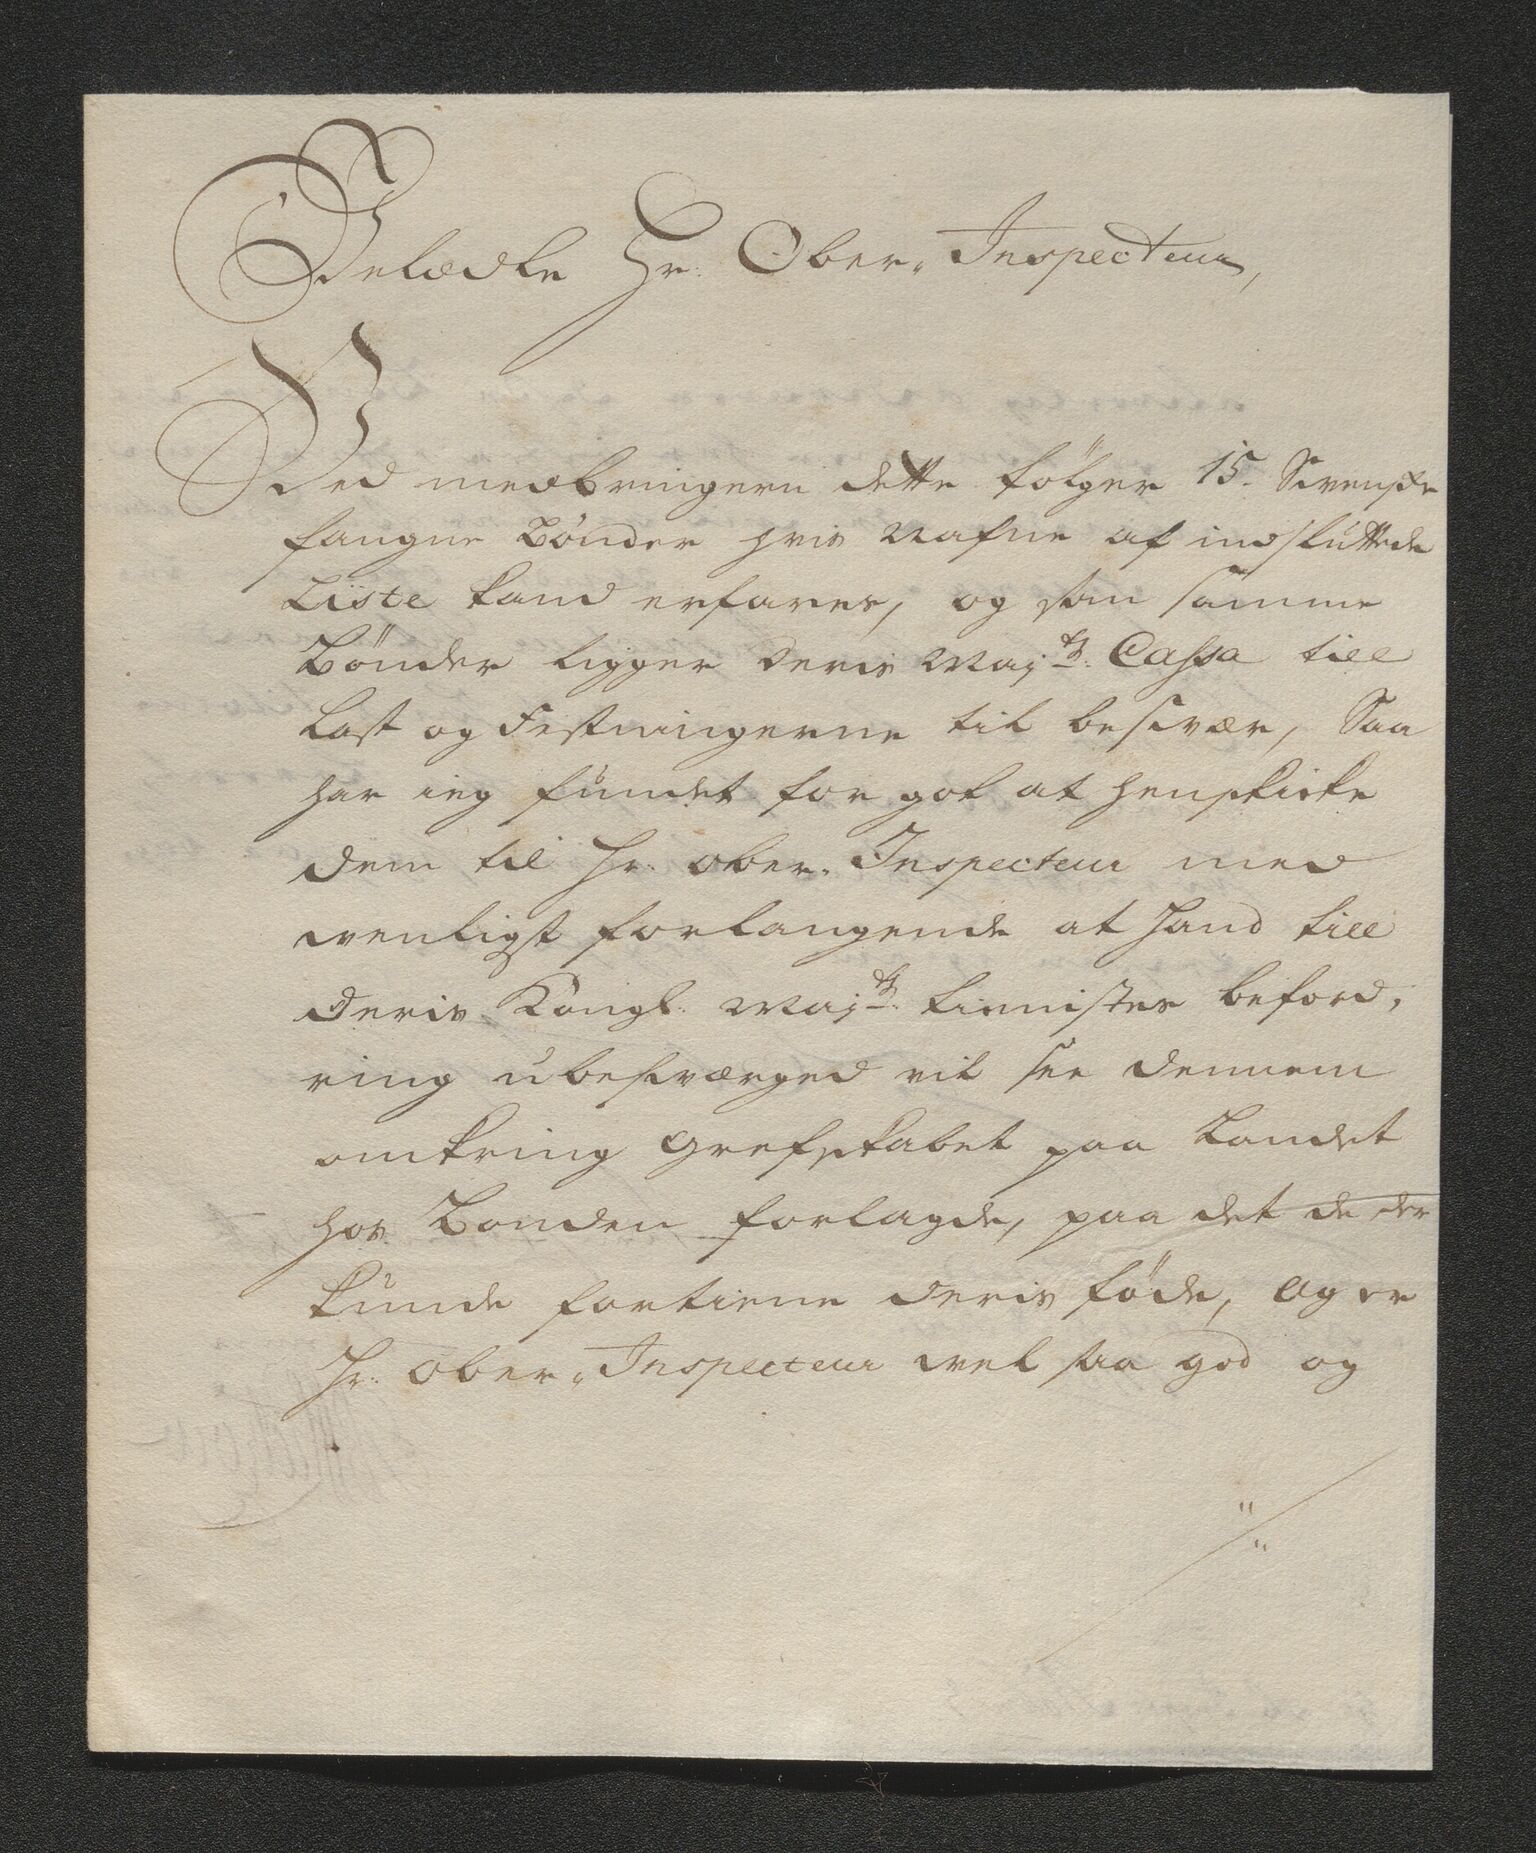 Velædle Hr. Ober, Inspecteur,
Ved medbringern dette følger 15. Svenske
fangne Bønder hvis Nafne af indsluttede
Liste kand erfares, og som samme
Bønder ligger Deris May:ts: Cassa till
Last og Festningerne til besvær, Saa
har ieg fundet for got at henskicke
dem til Hr. Ober. Inspecteur med
venligst forlangende at Hand till
Deris Kongl. May:ts: tiennistes beford,
ring ubesværged vil see dennem
omkring Grefskabet paa Landet
hos Bonden forlagde, paa det de der
kunde fortiene deris føde, Og er
Hr. Ober, Inspecteur vel saa god og